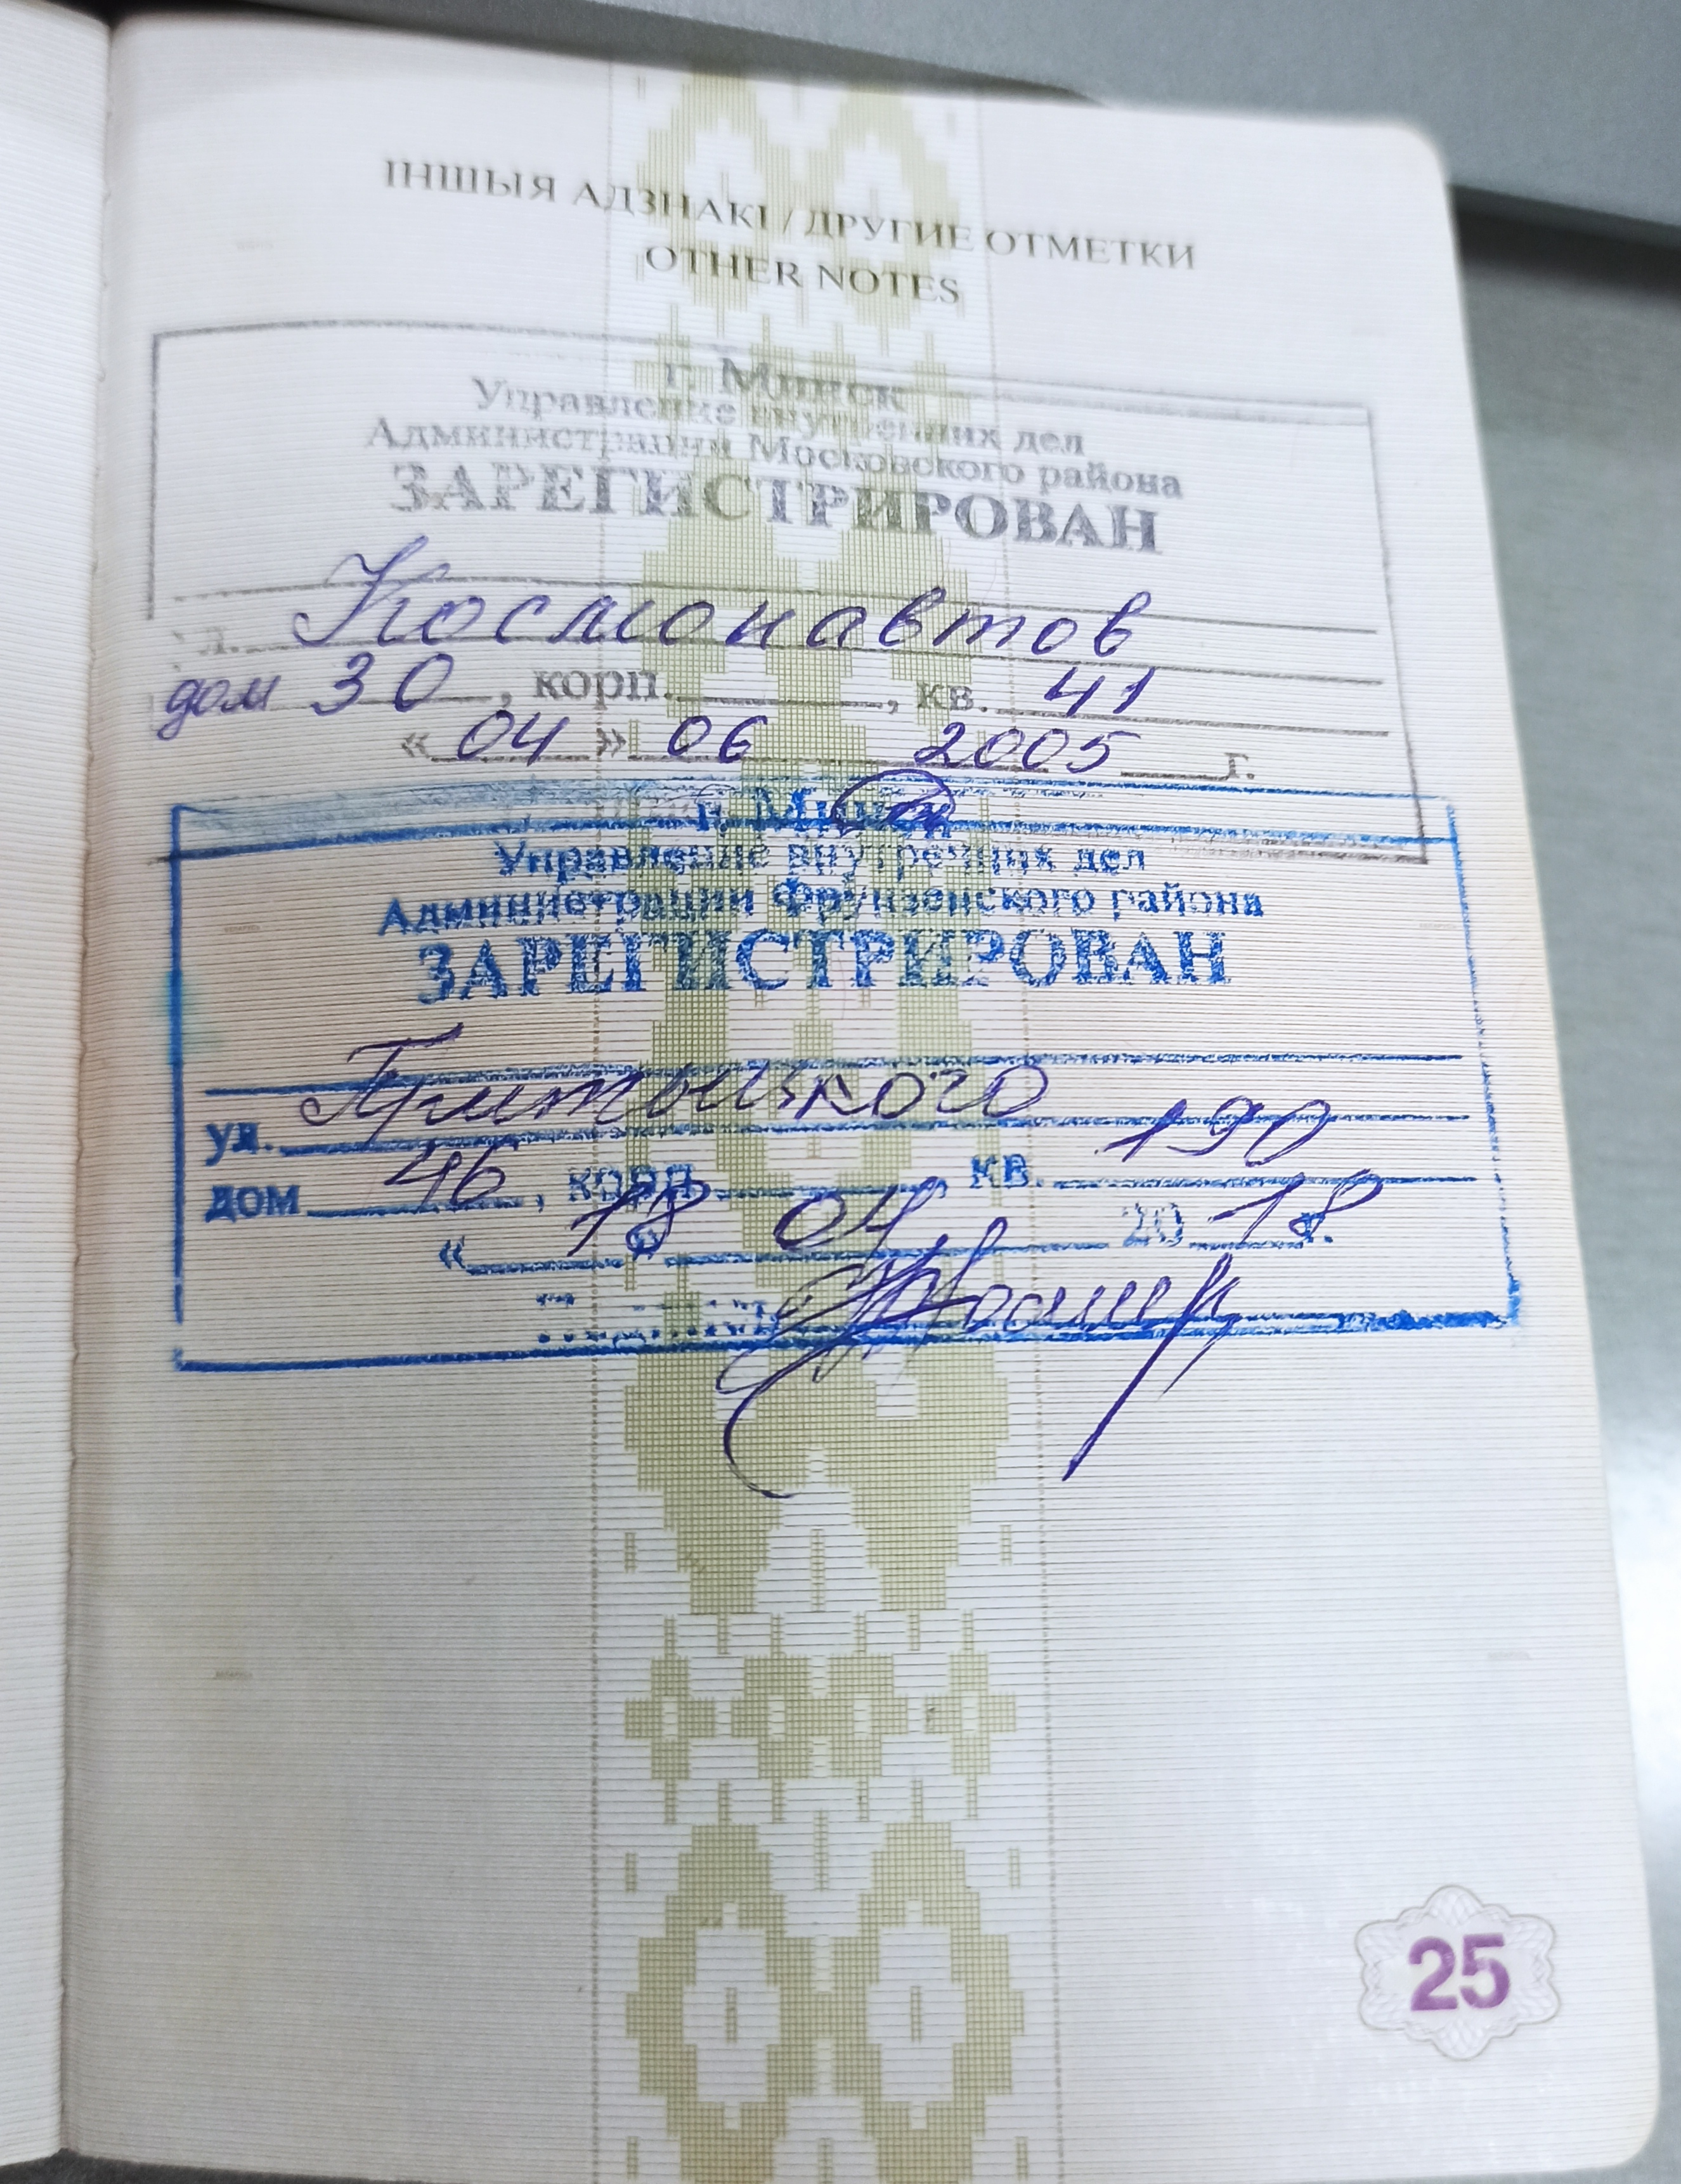 ІНШЫЯ АДЗНАКІ / ДРУГИЕ ОТМЕТКИ
OTHER NOTES
г. Минск
Управление внутренних дел
Администрации Московского района
ЗАРЕГИСТРИРОВАН
ул. Космонавтов
дом 30, корп. , кв. 41
« 04 » 06 2005 г.
г. Минск
Управление внутренних дел
Администрации Фрунзенского района
ЗАРЕГИСТРИРОВАН
ул. Притыцкого
дом 46, корп. , кв. 190
« 18 » 04 2018 г.
25